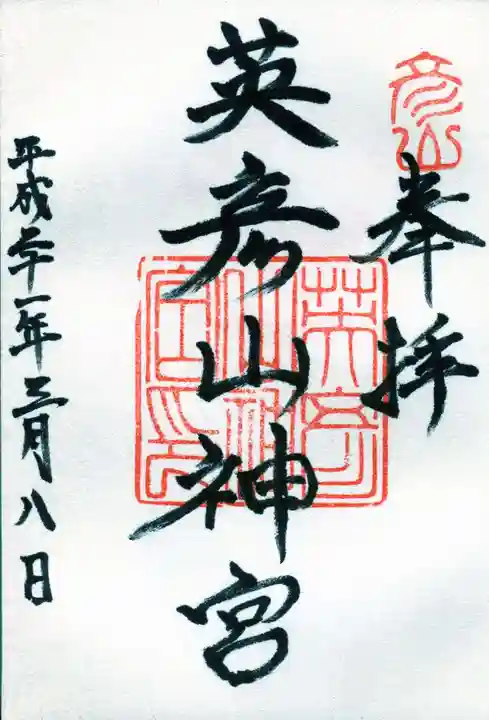 彦山
奉拝
英彦山神宮
英彦山神宮印
平成二十一年三月八日